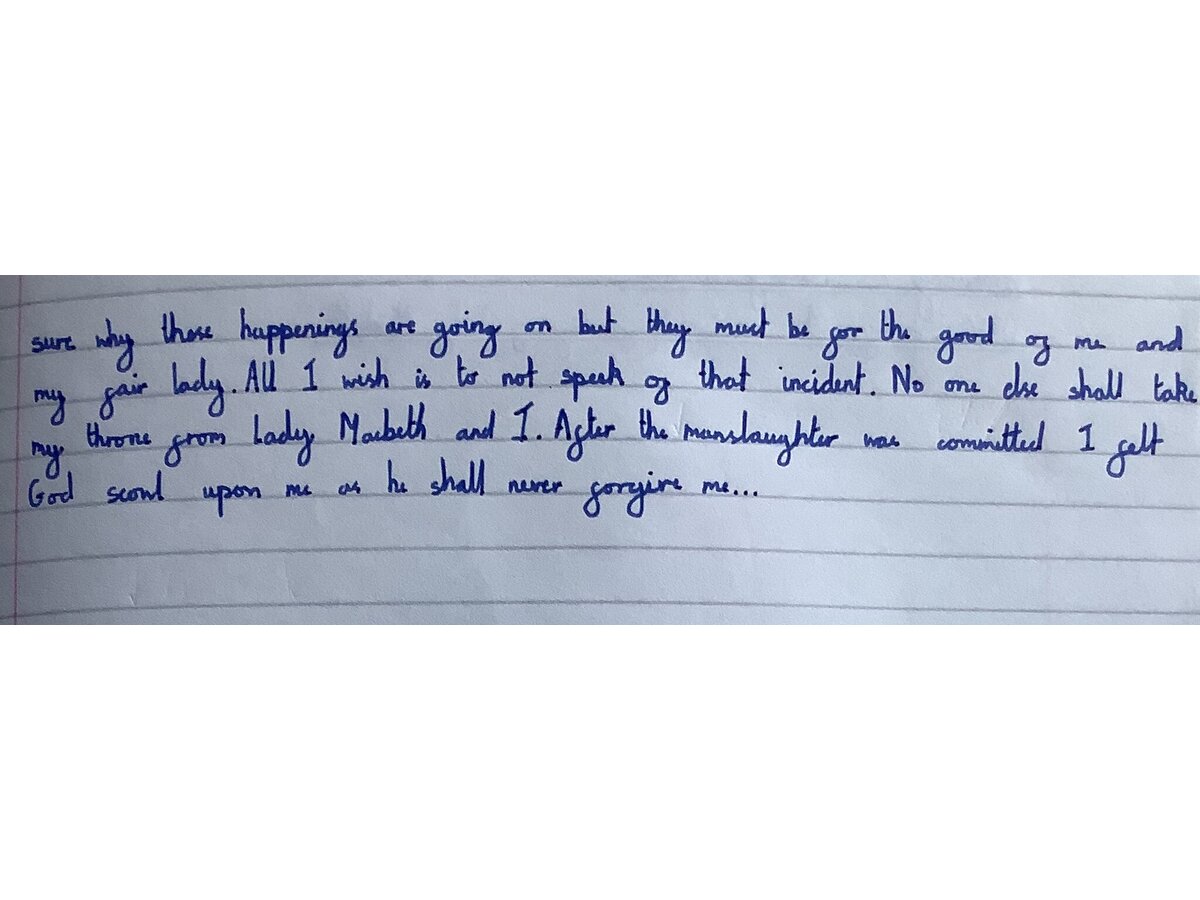 sure why these happenings are going on but they must be for the good of me and
my fair lady. All I wish is to not speak of that incident. No one else shall take
my throne from Lady Macbeth and I. After the manslaughter was committed I felt
God scowl upon me as he shall never forgive me...